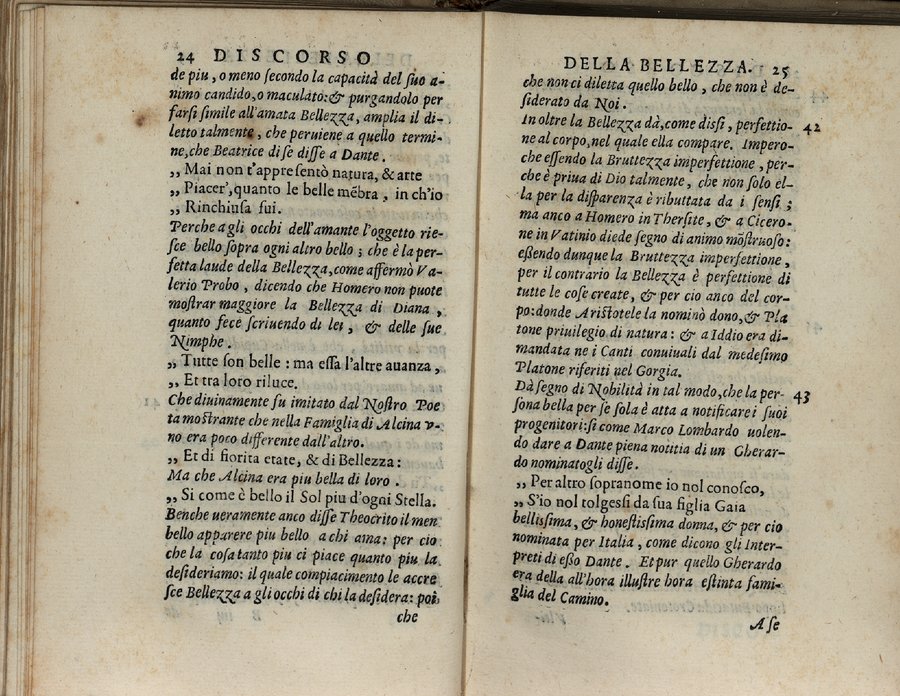 24 DISCORSO
de piu, o meno secondo la capacità del suo a-
nimo candido, o maculato: & purgandolo per
farsi simile all'amata Bellezza, amplia il di-
letto talmente, che peruiene a quello termi-
ne, che Beatrice di se disse a Dante.
„ Mai non t'appresentò natura, & arte
„ Piacer', quanto le belle mẽbra, in ch'io
„ Rinchiusa fui.
Perche agli occhi dell'amante l'oggetto rie-
sce bello sopra ogni altro bello; che è la per-
fetta laude della Bellezza, come affermò Va-
lerio Probo, dicendo che Homero non puote
mostrar maggiore la Bellezza di Diana,
quanto fece scriuendo di lei, & delle sue
Nimphe.
„ Tutte son belle: ma essa l'altre auanza,
„ Et tra loro riluce.
Che diuinamente fu imitato dal Nostro Poe
ta mostrante che nella Famiglia di Alcina v-
no era poco differente dall'altro.
„ Et di fiorita etate, & di Bellezza:
Ma che Alcina era piu bella di loro.
„ Si come è bello il Sol piu d'ogni Stella.
Benche ueramente anco disse Theocrito il men
bello apparere piu bello a chi ama: per cio
che la cosa tanto piu ci piace quanto piu la
desideriamo: il quale compiacimento le accre
sce Bellezza a gli occhi di chi la desidera: poi
che
DELLA BELLEZZA. 25
che non ci diletta quello bello, che non è de-
siderato da Noi.
In oltre la Bellezza dà, come dissi, perfettio- 42
ne al corpo, nel quale ella compare. Impero-
che essendo la Bruttezza imperfettione, per-
che è priua di Dio talmente, che non solo el-
la per la disparenza è ributtata da i sensi;
ma anco a Homero in Thersite, & a Cicero-
ne in Vatinio diede segno di animo mõstruoso:
eßendo dunque la Bruttezza imperfettione,
per il contrario la Bellezza è perfettione di
tutte le cose create, & per cio anco del cor-
po: donde Aristotele la nominò dono, & Pla
tone priuilegio di natura: & a Iddio era di-
mandata ne i Canti conuiuali dal medesimo
Platone riferiti nel Gorgia.
Dà segno di Nobilità in tal modo, che la per- 43
sona bella per se sola è atta a notificare i suoi
progenitori: si come Marco Lombardo uolen-
do dare a Dante piena notitia di un Gherar-
do nominatogli disse.
„ Per altro sopranome io nol conosco,
„ S'io nol tolgessi da sua figlia Gaia
bellissima, & honestissima donna, & per cio
nominata per Italia, come dicono gli Inter-
preti di eßo Dante. Et pur quello Gherardo
era della all'hora illustre hora estinta fami-
glia del Camino.
A se